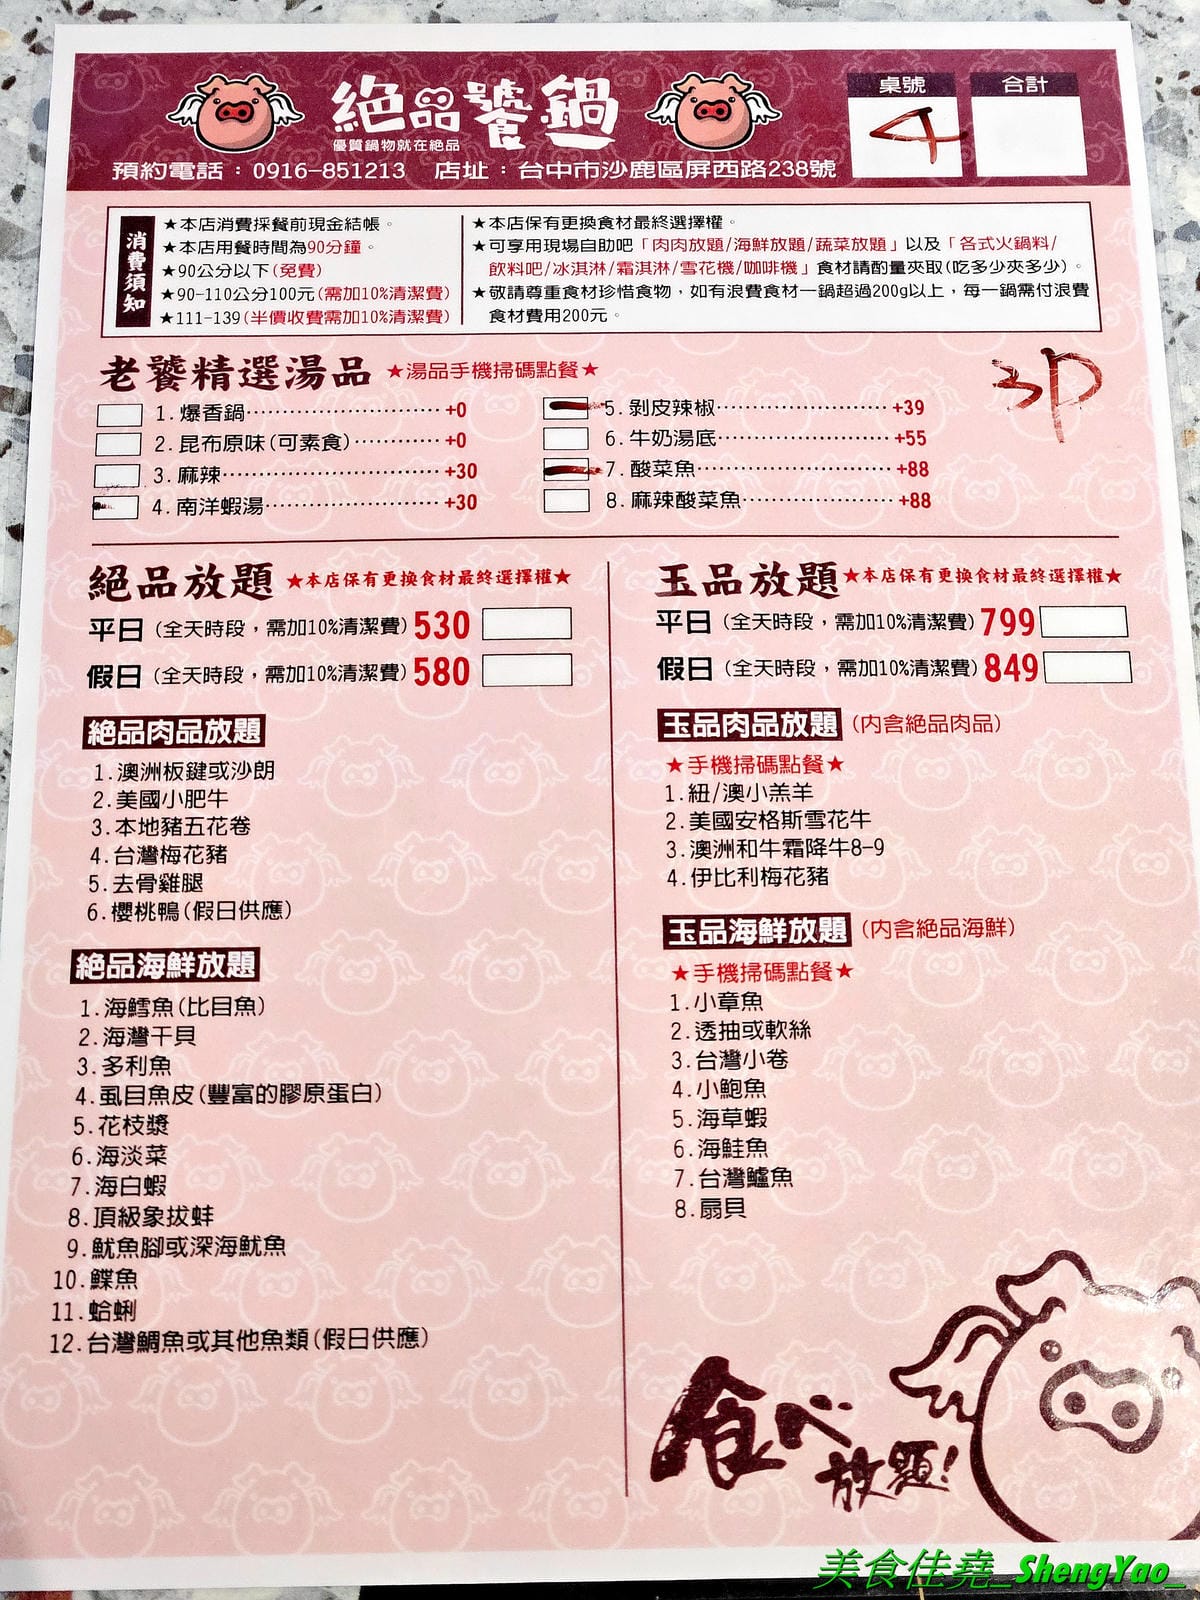 絕品饕鍋
優質鍋物就在絕品
預約電話：0916-851213　店址：台中市沙鹿區屏西路238號
桌號
4
合計
消費須知
★本店消費採餐前現金結帳。
★本店用餐時間為90分鐘。
★90公分以下(免費)
★90-110公分100元(需加10%清潔費)
★111-139(半價收費需加10%清潔費)
★本店保有更換食材最終選擇權。
★可享用現場自助吧「肉肉放題/海鮮放題/蔬菜放題」以及「各式火鍋料/
飲料吧/冰淇淋/霜淇淋/雪花機/咖啡機」食材請酌量夾取(吃多少夾多少)。
★敬請尊重食材珍惜食物，如有浪費食材一鍋超過200g以上，每一鍋需付浪費
食材費用200元。
老饕精選湯品 ★湯品手機掃碼點餐★
3P
1.爆香鍋⋯⋯⋯⋯⋯⋯⋯+0
2.昆布原味(可素食)⋯⋯⋯⋯+0
3.麻辣⋯⋯⋯⋯⋯⋯⋯⋯+30
4.南洋蝦湯⋯⋯⋯⋯⋯⋯+30
5.剝皮辣椒⋯⋯⋯⋯⋯⋯+39
6.牛奶湯底⋯⋯⋯⋯⋯⋯+55
7.酸菜魚⋯⋯⋯⋯⋯⋯⋯+88
8.麻辣酸菜魚⋯⋯⋯⋯⋯+88
絕品放題 ★本店保有更換食材最終選擇權★
平日(全天時段，需加10%清潔費)530
假日(全天時段，需加10%清潔費)580
絕品肉品放題
1.澳洲板鍵或沙朗
2.美國小肥牛
3.本地豬五花卷
4.台灣梅花豬
5.去骨雞腿
6.櫻桃鴨(假日供應)
絕品海鮮放題
1.海鱈魚(比目魚)
2.海灣干貝
3.多利魚
4.虱目魚皮(豐富的膠原蛋白)
5.花枝漿
6.海淡菜
7.海白蝦
8.頂級象拔蚌
9.魷魚腳或深海魷魚
10.鰈魚
11.蛤蜊
12.台灣鯛魚或其他魚類(假日供應)
玉品放題 ★本店保有更換食材最終選擇權★
平日(全天時段，需加10%清潔費)799
假日(全天時段，需加10%清潔費)849
玉品肉品放題 (內含絕品肉品)
★手機掃碼點餐★
1.紐/澳小羔羊
2.美國安格斯雪花牛
3.澳洲和牛霜降牛8-9
4.伊比利梅花豬
玉品海鮮放題 (內含絕品海鮮)
★手機掃碼點餐★
1.小章魚
2.透抽或軟絲
3.台灣小卷
4.小鮑魚
5.海草蝦
6.海鮭魚
7.台灣鱸魚
8.扇貝
食べ
放題!
美食佳堯_ShengYao_